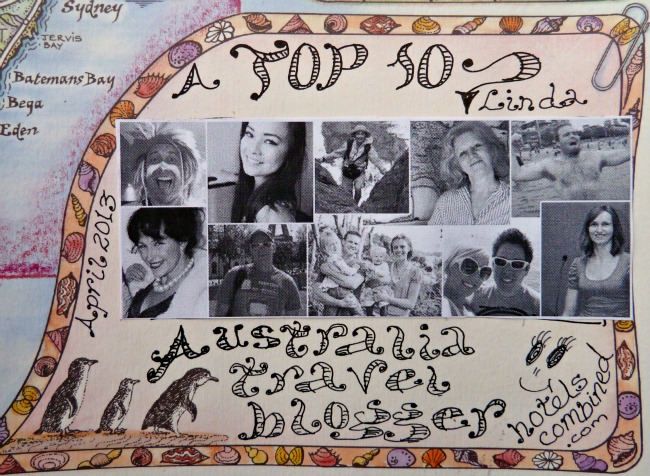 Sydney
JERVIS
BAY
Batemans Bay
Bega
Eden
A TOP 10
Linda
April 2013
Australia
travel
blogger
hotels
combined
.com